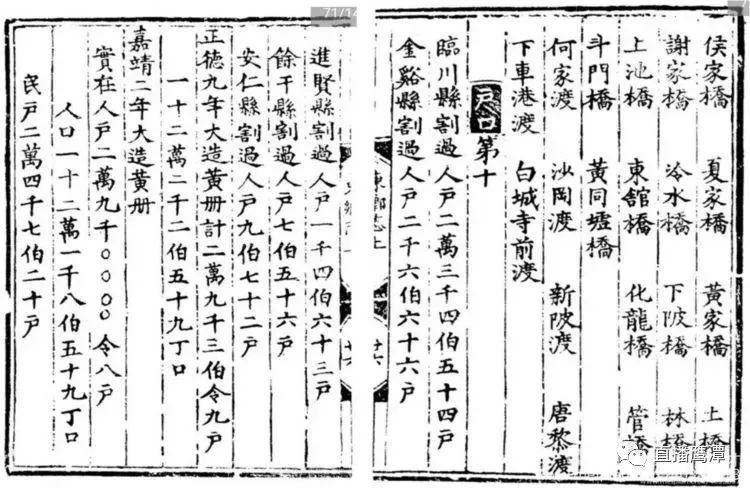 侯家橋 夏家橋 黃家橋 土橋
謝家橋 冷水橋 下陂橋 林橋
上池橋 東舘橋 化龍橋 管橋
斗門橋 黃同壚橋
何家渡 沙岡渡 新陂渡 唐黎渡
下車港渡 白城寺前渡
戶口第十
臨川縣割過人戶二萬三千四伯五十四戶
金谿縣割過人戶二千六伯六十六戶
東鄉志上
廿六
進賢縣割過人戶一千四伯六十三戶
餘干縣割過人戶七伯五十六戶
安仁縣割過人戶九伯七十二戶
正德九年大造黃册計二萬九千三伯令九戶
一十二萬二千二伯五十九丁口
嘉靖二年大造黃册
實在人戶二萬九千〇〇〇〇令八戶
人口一十二萬一千八伯五十九丁口
民戶二萬四千七伯二十戶
71/14
直播鹰潭